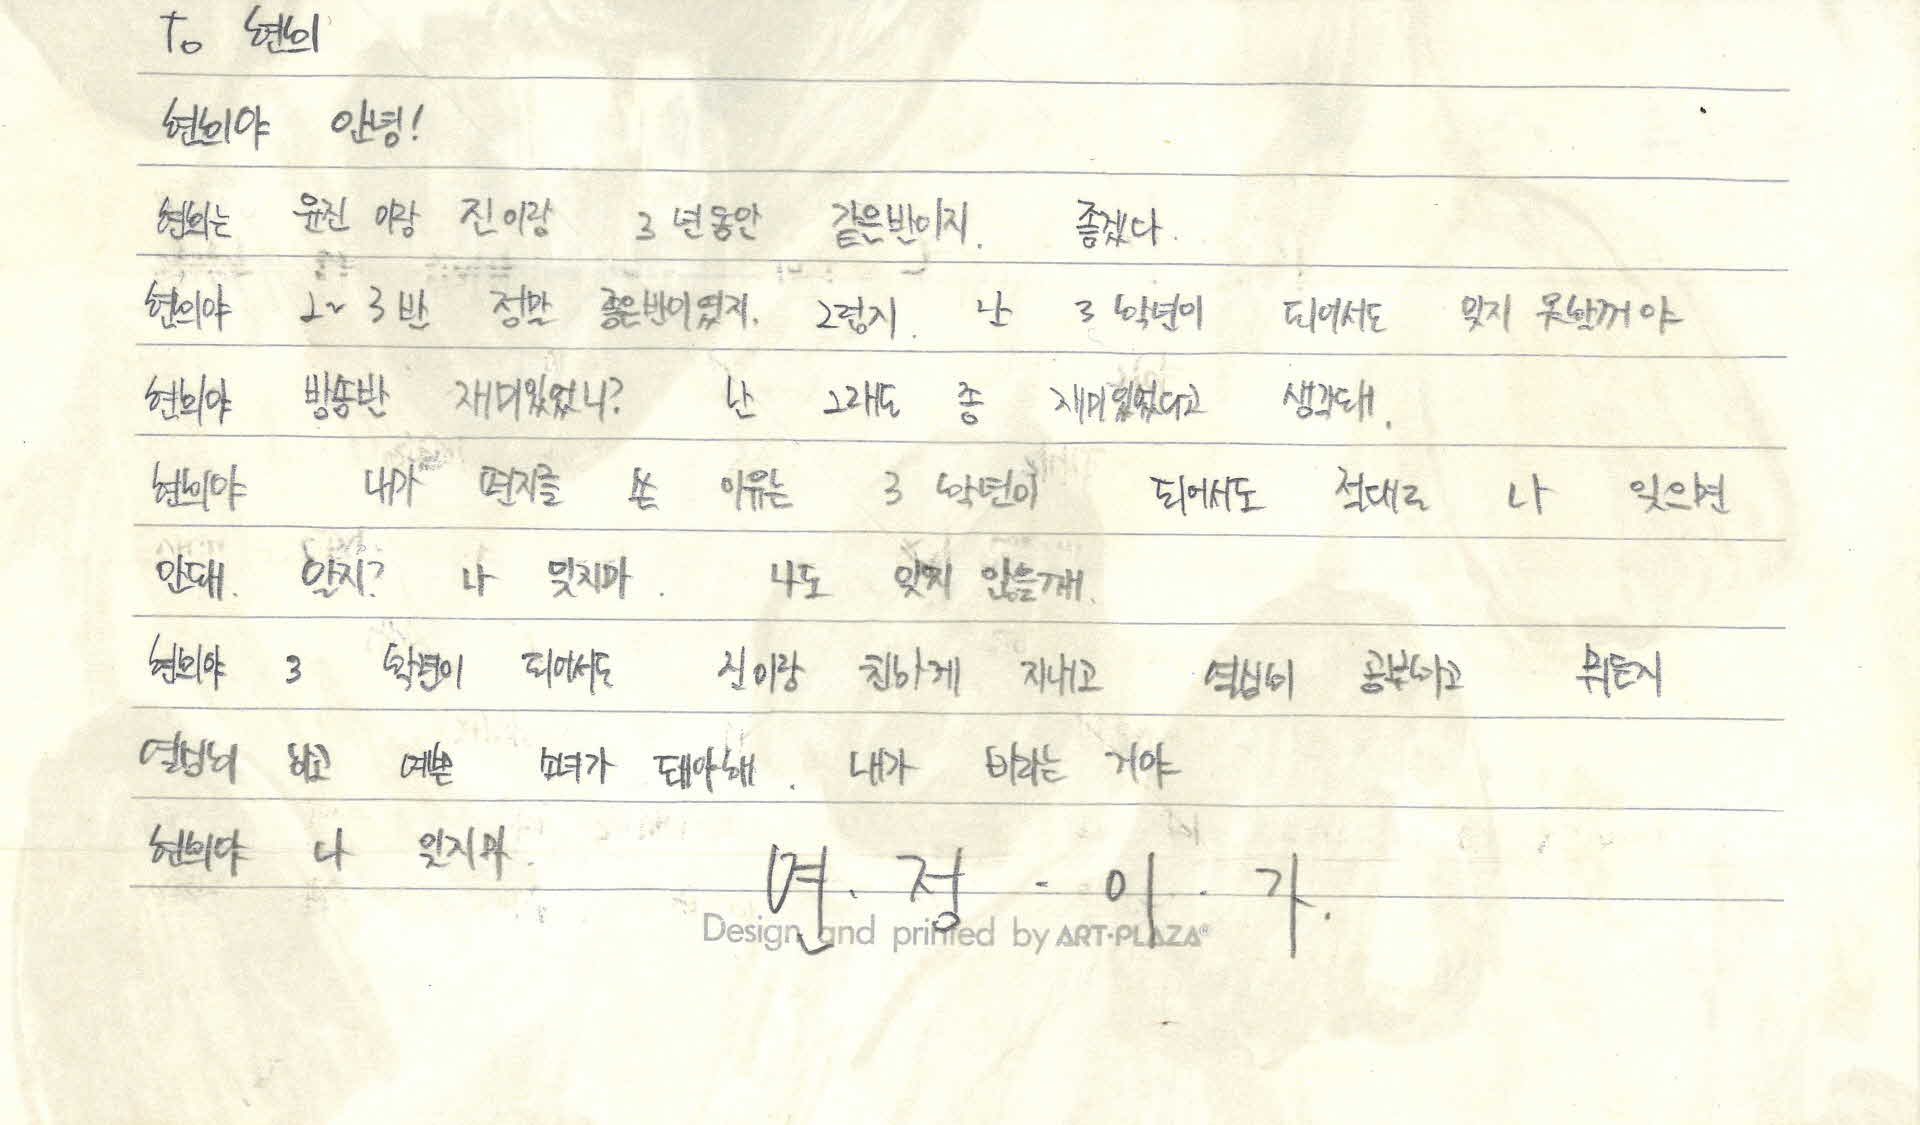 To 현희
현희야 안녕!
현희는 윤진이랑 진이랑 3년동안 같은반이지. 좋겠다.
현희야 2~3반 정말 좋은반이였지. 그렇지. 난 3학년이 되어서도 잊지 못할꺼야
현희야 방송반 재미있었니? 난 그래도 좀 재미있었다고 생각돼.
현희야 내가 편지를 쓴 이유는 3학년이 되어서도 적대로 나 잊으면
안돼. 알지? 나 잊지마. 나도 잊지 않을깨.
현희야 3학년이 되어서도 진이랑 친하게 지내고 열심히 공부하고 뭐든지
열심히 하고 예쁜 소녀가 돼야해. 내가 바라는 거야
현희야 나 잊지마.
연.정.이.가.
Design and printed by ART-PLAZA®